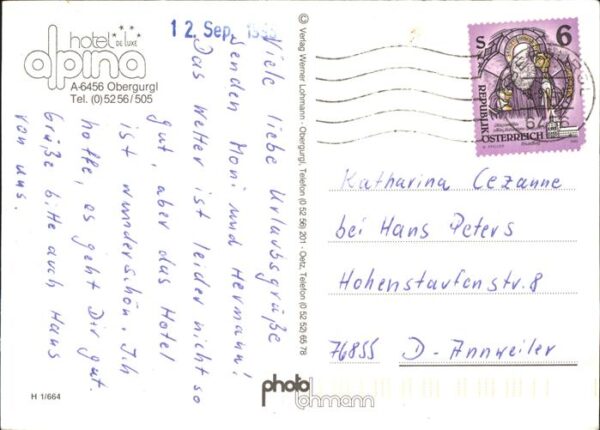 hotel
DE LUXE
alpina
A-6456 Obergurgl
Tel. (0) 52 56 / 505
12. Sep.
Viele liebe Urlaubsgrüße
senden Moni und Hermann!
Das Wetter ist leider nicht so
gut, aber das Hotel
ist wunderschön. Ich
hoffe, es geht Dir gut.
Grüße bitte auch Hans
von uns.
H 1/664
© Verlag Werner Lohmann - Obergurgl, Telefon (0 52 56) 201 - Oetz, Telefon (0 52 52) 65 78
photo
lohmann
S 6
REPUBLIK
ÖSTERREICH
Katharina Cezanne
bei Hans Peters
Hohenstaufenstr. 8
76855 D-Annweiler